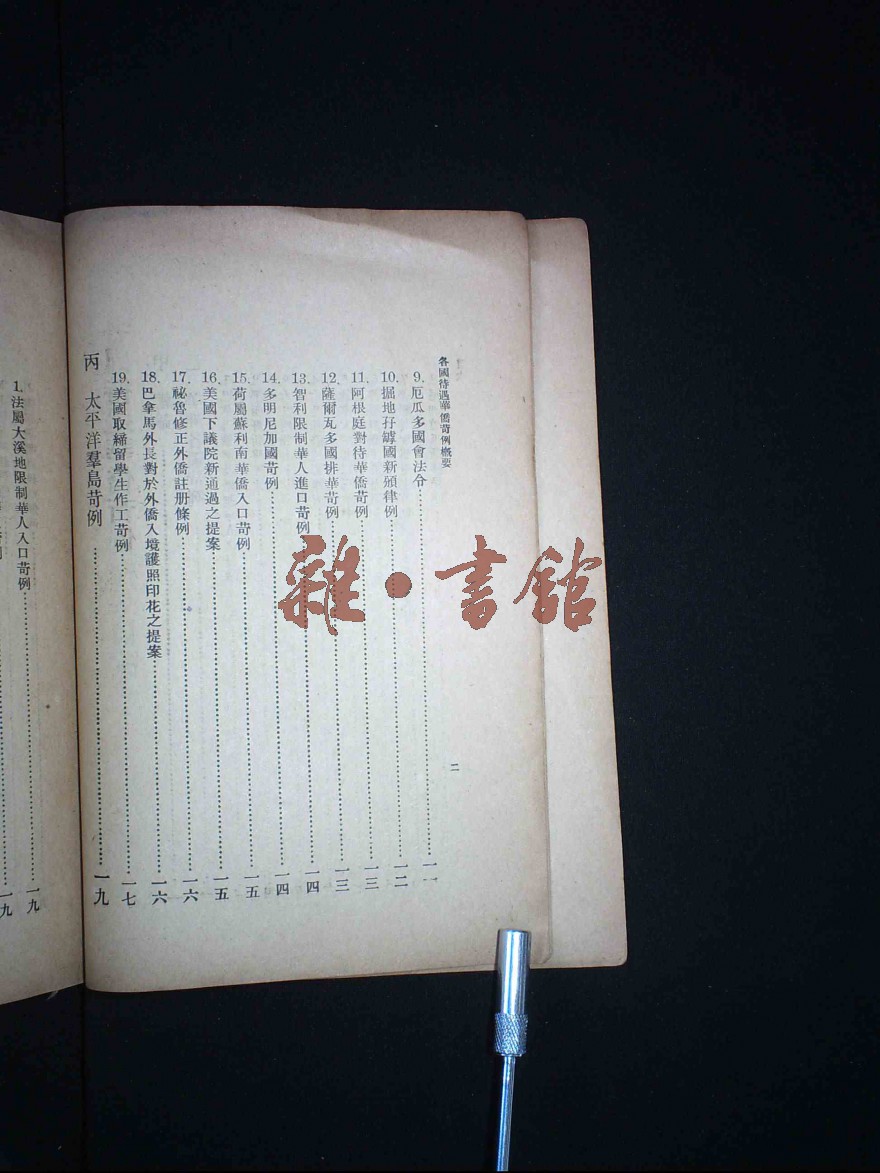 各國待遇華僑苛例概要
二
9. 厄瓜多國會法令……一一
10. 掘地孖罅國新頒律例……一二
11. 阿根庭對待華僑苛例……一三
12. 薩爾瓦多國排華苛例……一三
13. 智利限制華人進口苛例……一四
14. 多明尼加國苛例……一四
15. 荷屬蘇利南華僑入口苛例……一五
16. 美國下議院新通過之提案……一五
17. 祕魯修正外僑註册條例……一六
18. 巴拿馬外長對於外僑入境護照印花之提案……一六
19. 美國取締留學生作工苛例……一七
丙 太平洋羣島苛例……一九
1. 法屬大溪地限制華人入口苛例……一九
一九
雜·書館